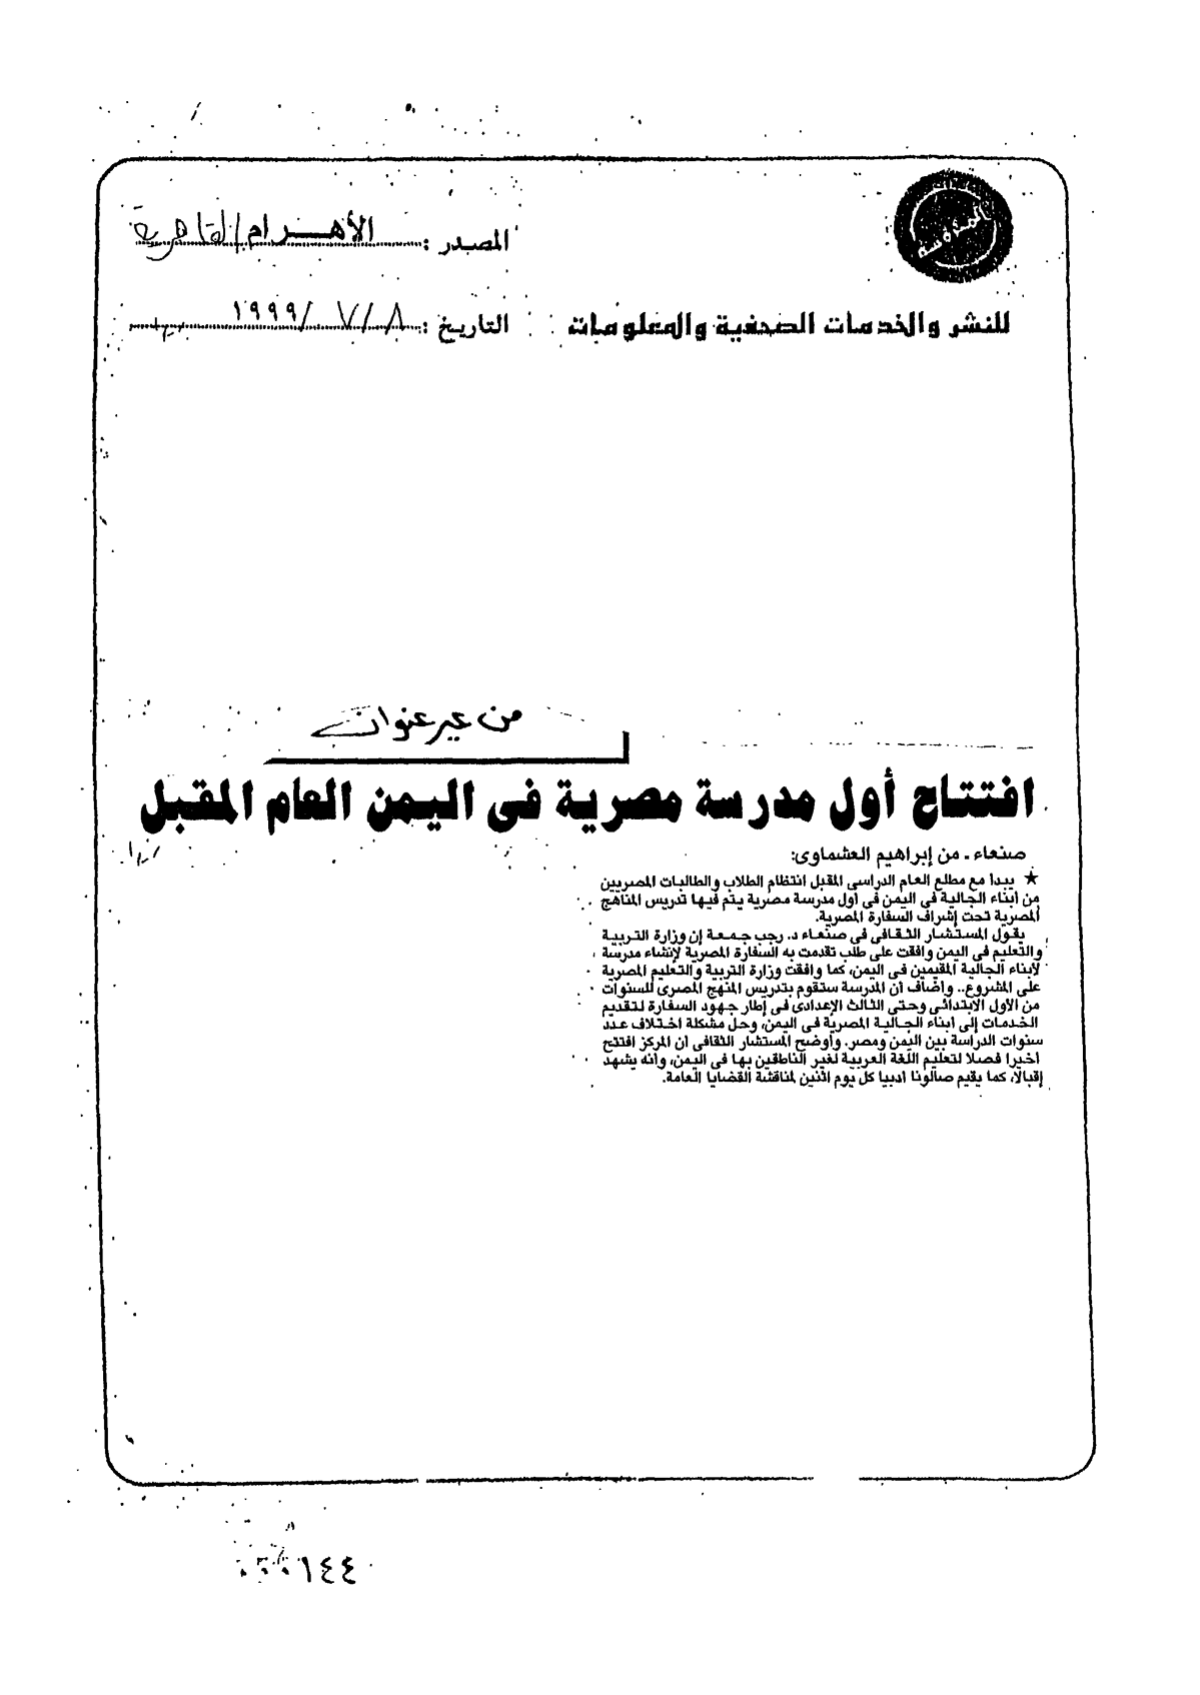 المصدر : الأهرام / القاهرية
للنشر والخدمات الصحفية والمعلومات
التاريخ : ٨ / ٧ / ١٩٩٩
من غير عنوان
افتتاح أول مدرسة مصرية فى اليمن العام المقبل
صنعاء ـ من إبراهيم العشماوى:
★ يبدأ مع مطلع العام الدراسى المقبل انتظام الطلاب والطالبات المصريين
من أبناء الجالية فى اليمن فى أول مدرسة مصرية يتم فيها تدريس المناهج
المصرية تحت إشراف السفارة المصرية.
يقول المستشار الثقافى فى صنعاء د. رجب جمعة إن وزارة التربية
والتعليم فى اليمن وافقت على طلب تقدمت به السفارة المصرية لإنشاء مدرسة
لأبناء الجالية المقيمين فى اليمن، كما وافقت وزارة التربية والتعليم المصرية
على المشروع.. وأضاف أن المدرسة ستقوم بتدريس المنهج المصرى للسنوات
من الأول الابتدائى وحتى الثالث الإعدادى فى إطار جهود السفارة لتقديم
الخدمات إلى أبناء الجالية المصرية فى اليمن، وحل مشكلة اختلاف عدد
سنوات الدراسة بين اليمن ومصر. وأوضح المستشار الثقافى أن المركز افتتح
أخيرا فصلا لتعليم اللغة العربية لغير الناطقين بها فى اليمن، وأنه يشهد
إقبالا، كما يقيم صالونا أدبيا كل يوم اثنين لمناقشة القضايا العامة.